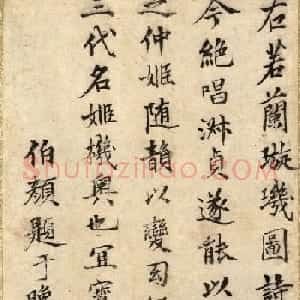 右若蘭璇璣圖詩
今絕唱淑貞遂能以
之仲姬隨韻以變
三代名姬機奧也宜寶
伯顏題于晚